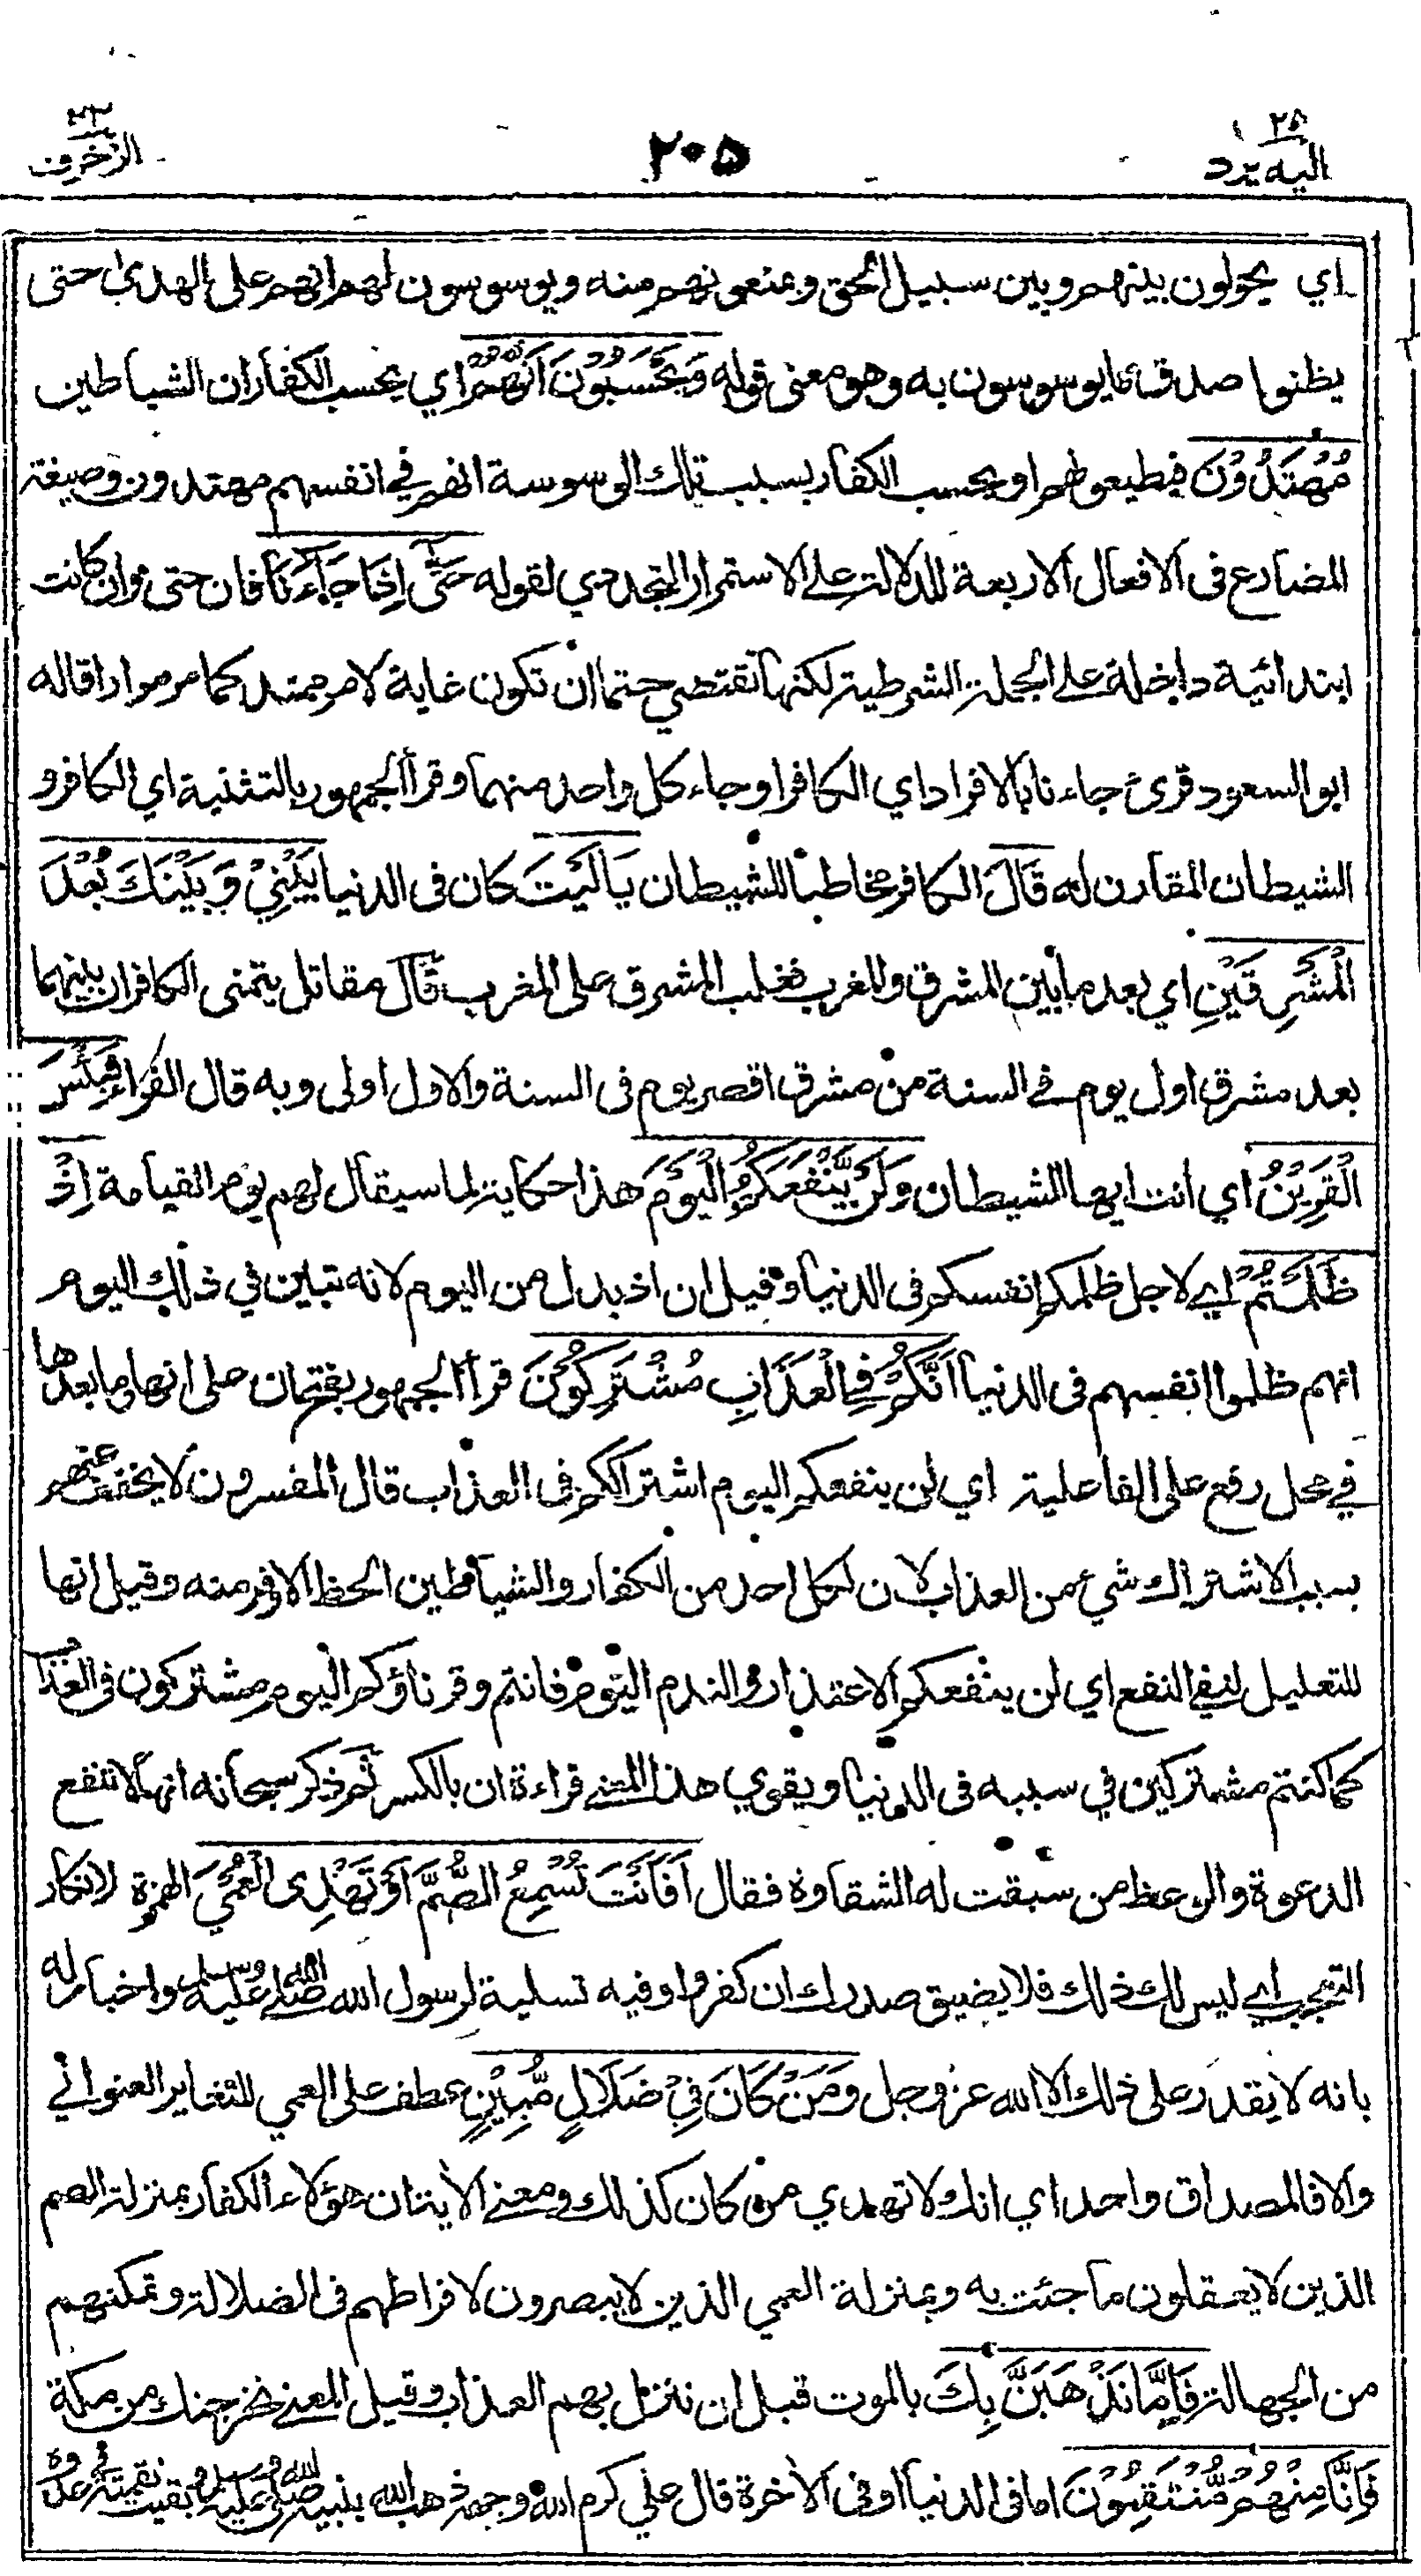 ٢٥
اليه يرد
٢٠٥
٤٣
الزخرف
اي يحولون بينهم وبين سبيل الحق ويمنعونهم منه ويوسوسون لهم انهم على الهدى حتى
يظنوا صدق ما يوسوسون به وهو معنى قوله وَيَحْسَبُوْنَ اَنَّهُمْ اي يحسب الكفار ان الشياطين
مُهْتَدُوْنَ فيطيعونهم او يحسب الكفار بسبب تلك الوسوسة انهم في انفسهم مهتدون وصيغة
المضارع فى الافعال الاربعة للدلالة على الاستمرار التجددي لقوله حَتّٰى اِذَا جَآءَنَا فان حتى وان كانت
ابتدائية داخلة على الجملة الشرطية لكنها تقتضي حتما ان تكون غاية لامر ممتد كما مر مرارا قاله
ابو السعود قرئ جاءنا بالافراد اي الكافر او جاء كل واحد منهما وقرأ الجمهور بالتثنية اي الكافر و
الشيطان المقارن له قَالَ الكافر مخاطبا للشيطان يَا لَيْتَ كان فى الدنيا بَيْنِيْ وَبَيْنَكَ بُعْدَ
الْمَشْرِقَيْنِ اي بعد ما بين المشرق والمغرب فغلب المشرق على المغرب قال مقاتل يتمنى الكافر ان بينهما
بعد مشرق اول يوم في السنة من مشرق اقصر يوم فى السنة والاول اولى وبه قال الفراء فَبِئْسَ
الْقَرِيْنُ اي انت ايها الشيطان وَلَنْ يَّنْفَعَكُمُ الْيَوْمَ هذا حكاية لما سيقال لهم يوم القيامة اِذْ
ظَلَمْتُمْ اي لاجل ظلمكم انفسكم فى الدنيا وقيل ان اذ بدل من اليوم لانه تبين في ذلك اليوم
انهم ظلموا انفسهم فى الدنيا اَنَّكُمْ فِي الْعَذَابِ مُشْتَرِكُوْنَ قرأ الجمهور بفتح ان على انها وما بعدها
في محل رفع على الفاعلية اي لن ينفعكم اليوم اشتراككم فى العذاب قال المفسرون لا يخفف عنهم
بسبب الاشتراك شيء من العذاب لان لكل احد من الكفار والشياطين الحظ الاوفر منه وقيل انها
للتعليل لنفي النفع اي لن ينفعكم الاعتذار والندم اليوم فانتم وقرناؤكم اليوم مشتركون فى العذاب
كما كنتم مشتركين في سببه فى الدنيا ويقوي هذا المعنى قراءة ان بالكسر ثم ذكر سبحانه انها لا تنفع
الدعوة والوعظ من سبقت له الشقاوة فقال اَفَاَنْتَ تُسْمِعُ الصُّمَّ اَوْ تَهْدِى الْعُمْيَ الهمزة لانكار
التعجب اي ليس لك ذلك فلا يضيق صدرك ان كفروا وفيه تسلية لرسول الله صلى الله عليه وسلم واخبار له
بانه لا يقدر على ذلك الا الله عز وجل وَمَنْ كَانَ فِيْ ضَلَالٍ مُّبِيْنٍ عطف على العمي للتغاير العنواني
والا فالمصداق واحد اي انك لا تهدي من كان كذلك ومعنى الايتان هؤلاء الكفار بمنزلة الصم
الذين لا يعقلون ما جئت به وبمنزلة العمي الذين لا يبصرون لافراطهم فى الضلالة وتمكنهم
من الجهالة فَاِمَّا نَذْهَبَنَّ بِكَ بالموت قبل ان ننزل بهم العذاب وقيل المعنى نخرجنك من مكة
فَاِنَّا مِنْهُمْ مُّنْتَقِمُوْنَ اما فى الدنيا او فى الآخرة قال علي كرم الله وجهه ذهب الله بنبيه صلى الله عليه وسلم وبقيت نقمته في عدوه